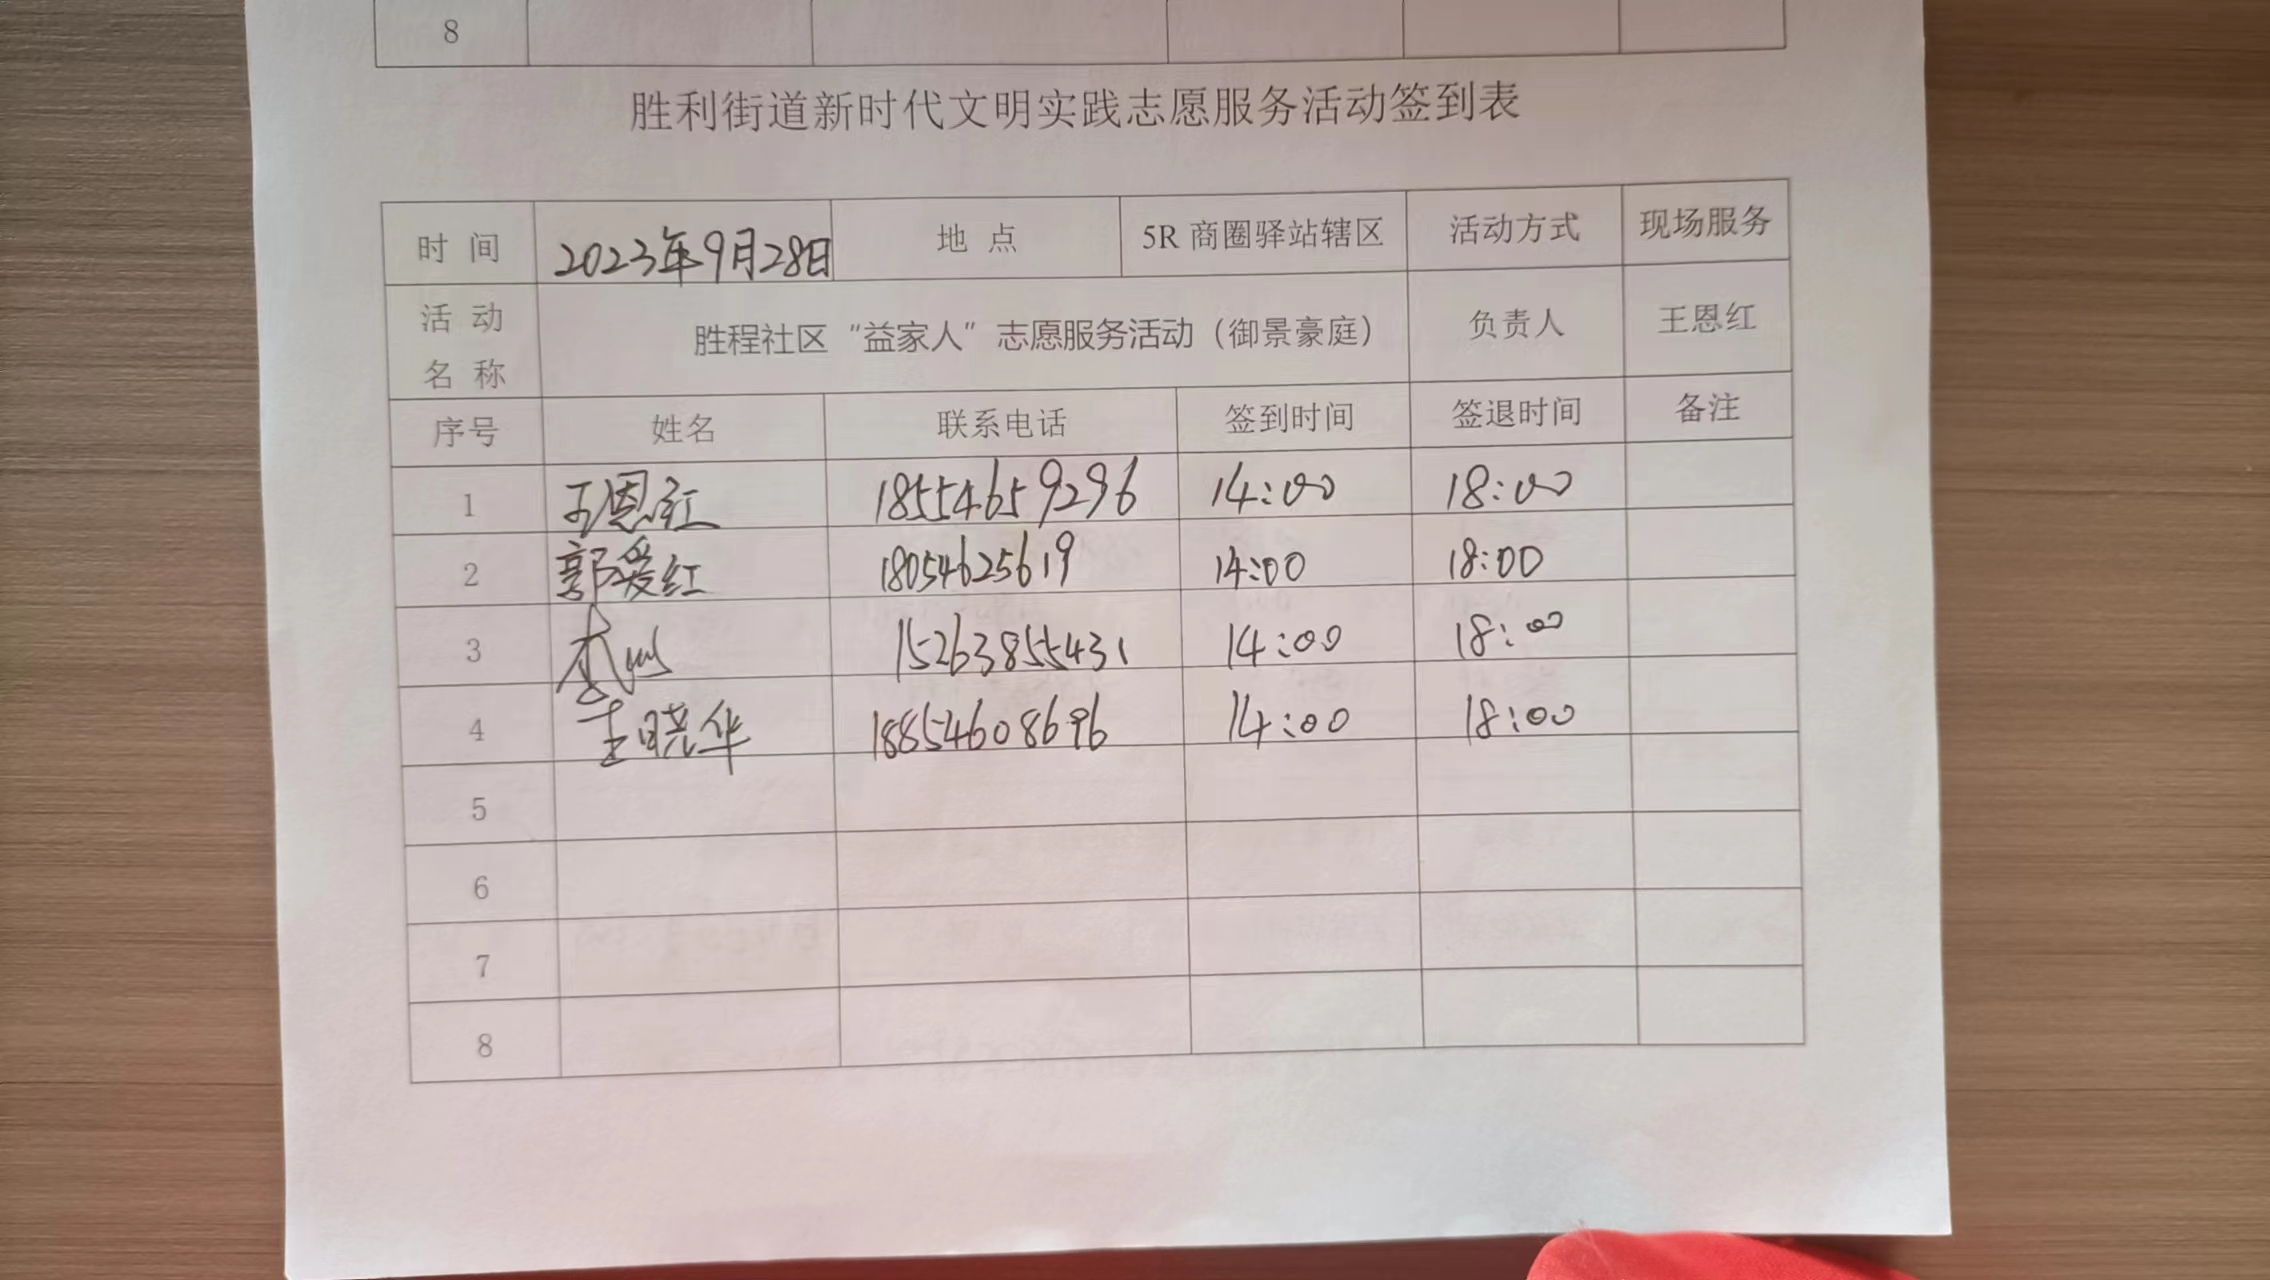 8
胜利街道新时代文明实践志愿服务活动签到表
时 间 2023年9月28日 地 点 5R 商圈驿站辖区 活动方式 现场服务
活 动 名 称 胜程社区“益家人”志愿服务活动（御景豪庭） 负责人 王恩红
序号 姓名 联系电话 签到时间 签退时间 备注
1 王恩红 18554659296 14:00 18:00
2 郭爱红 18054625619 14:00 18:00
3 李 15263855431 14:00 18:00
4 王晓华 18854608696 14:00 18:00
5
6
7
8